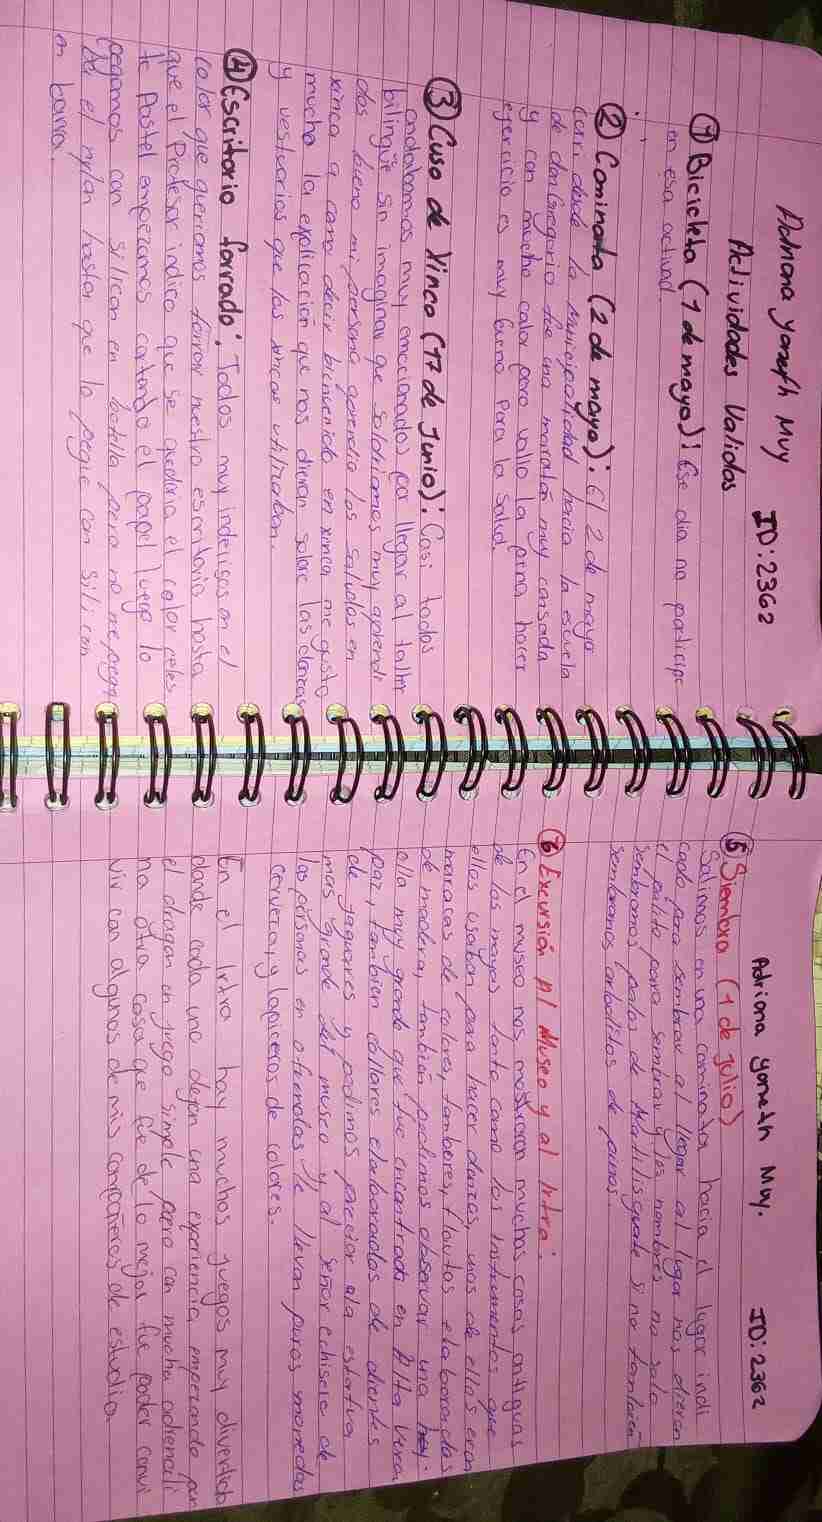 Adriana Yoneth Muy ID:2362
Actividades Validas
① Bicicleta (1 de mayo): Ese dia no participe
en esa activad
② Caminata (2 de mayo): El 2 de mayo
corri desde la Municipalidad hacia la escuela
de don Gregorio fue una maratón muy cansada
y con mucho calor pero vallo la pena hacer
ejercicio es muy bueno para la salud.
③ Cuso de Xinca (17 de Junio): Casi todos
andabamos muy emocionados por llegar al taller
bilingüe sin imaginar que saldriamos muy aprendi
dos bueno mi persona aprendio los saludos en
xinca a como decir bienvenido en xinca me gusto
mucho la explicación que nos dieron sobre las danzas
y vestuarios que los xincas utilizaban.
④ Escritorio forrado: Todos muy indecisos en el
color que queriamos forrar nuestro escritorio hasta
que el Profesor indico que se quedaria el color celes
te Pastel empezamos cortando el papel luego lo
pegamos con silicon en botella pero no me pego
el nylon hasta que lo pegue con silicon
en barra.
Adriana Yoneth Muy. ID:2362
⑤ Siembra (1 de julio)
Salimos en una caminata hacia el lugar indi
cado para sembrar al llegar al lugar nos dieron
el palito para sembrar y los nombres no solo
sembramos palos de Matilisguate si no tambien
sembramos arbolitos de pinos.
⑥ Excursión al Museo y al Irtra:
En el museo nos mostraron muchas cosas antiguas
de los mayas tanto como los instrumentos que
ellos usaban para hacer danzas, unos de ellos eran
maracas de colores, tambores, flautas elaborados
de madera, también pudimos observar una
olla muy grande que fue encontrada en Alta Vera
paz, tambien collares elaborados de dientes
de jaguares y pudimos la estatua
mas grande del museo y al señor echisero de
las personas en ofrendas le llevan puros monedas
cerveza, y lapiceros de colores.
En el Irtra hay muchos juegos muy divertidos
donde cada uno dejan una experiencia empezando por
el dragon un juego simple pero con mucha adrenali
na otra cosa que fue de lo mejor fue poder convi
vir con algunos de mis compañeros de estudio